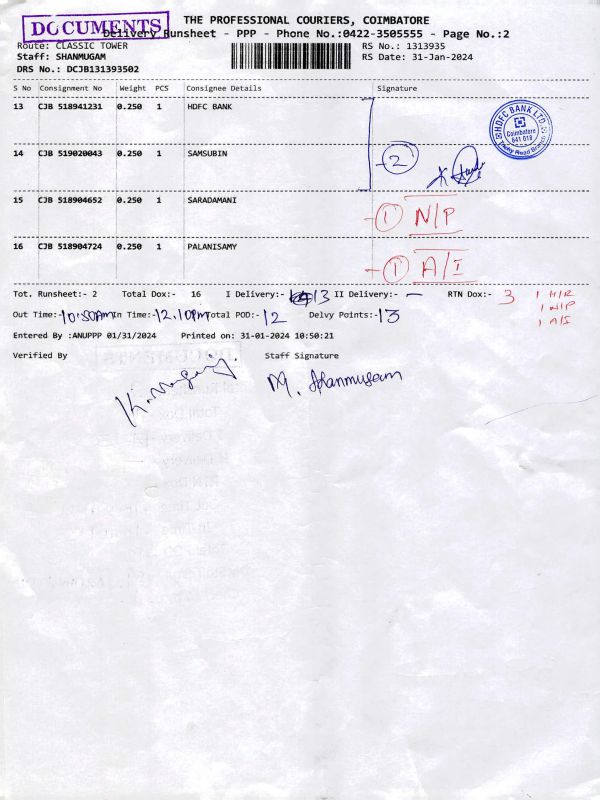 DOCUMENTS
THE PROFESSIONAL COURIERS, COIMBATORE
Delivery Runsheet - PPP - Phone No.:0422-3505555 - Page No.:2
Route: CLASSIC TOWER
RS No.: 1313935
Staff: SHANMUGAM
RS Date: 31-Jan-2024
DRS No.: DCJB131393502
S No Consignment No Weight PCS Consignee Details Signature
13 CJB 518941231 0.250 1 HDFC BANK
HDFC BANK LTD
Coimbatore
641 018
Trichy Road Branch
14 CJB 519020043 0.250 1 SAMSUBIN
2
15 CJB 518904652 0.250 1 SARADAMANI
1 N/P
16 CJB 518904724 0.250 1 PALANISAMY
1 A/I
Tot. Runsheet:- 2 Total Dox:- 16 I Delivery:- 13 II Delivery:- - RTN Dox:- 3
1 H/R
1 N/P
1 A/I
Out Time:-10:50Am In Time:-12.10PM Total POD:-12 Delvy Points:-13
Entered By :ANUPPP 01/31/2024 Printed on: 31-01-2024 10:50:21
Verified By Staff Signature
M. Shanmugam